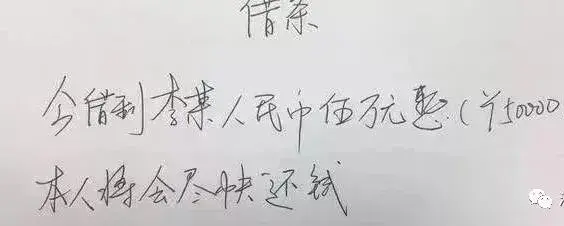 借条
今借到李某人民币伍万元整(¥50000
本人将会尽快还钱